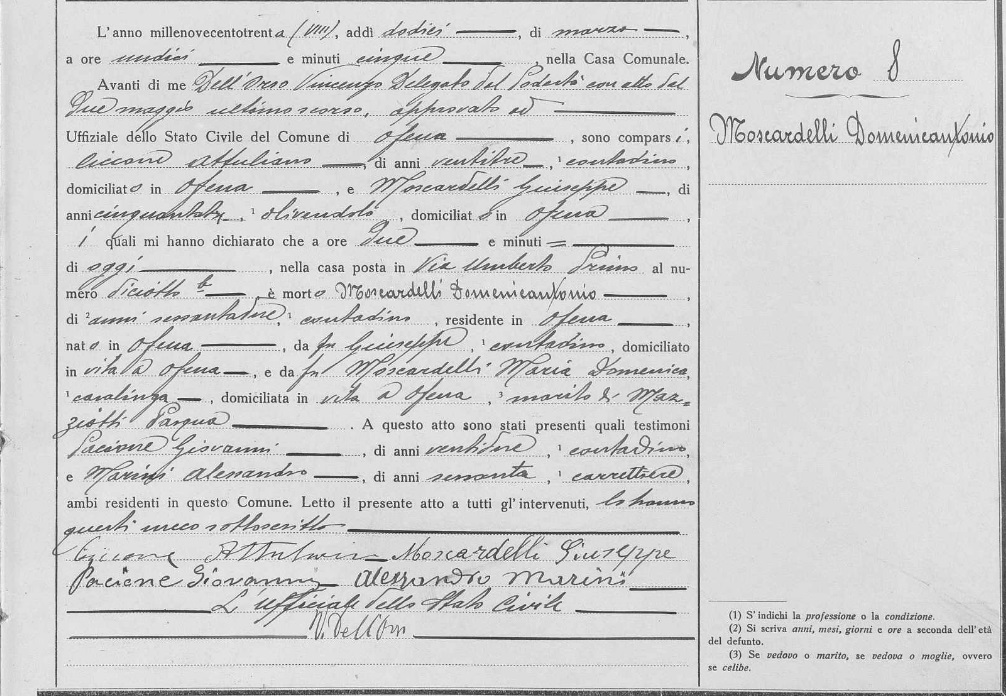 L'anno millenovecentotrenta (VIII), addì dodici, di marzo,
a ore undici e minuti cinque, nella Casa Comunale.
Avanti di me Dell'Orso Vincenzo Delegato del Podestà con atto del
due maggio ultimo scorso, approvato ed
Uffiziale dello Stato Civile del Comune di Ofena, sono comparsi,
Ciccone Attuliano, di anni ventitre, ¹ contadino,
domiciliato in Ofena, e Moscardelli Giuseppe, di
anni, ¹ olivendolo, domiciliato in Ofena
i quali mi hanno dichiarato che a ore due e minuti =
di oggi, nella casa posta in Via Umberto Primo al nu-
mero diciotto b, è morto Moscardelli Domenicantonio,
di ² anni sessantadue, ¹ contadino, residente in Ofena,
nato in Ofena, da fu Giuseppe, ¹ contadino, domiciliato
in vita a Ofena, e da fu Moscardelli Maria Domenica,
¹ casalinga, domiciliata in vita a Ofena, ³ marito di Maz=
ziotti Pasqua. A questo atto sono stati presenti quali testimoni
Pacione Giovanni, di anni ventidue, ¹ contadino,
e Marini Alessandro, di anni, ¹ carrettiere,
ambi residenti in questo Comune. Letto il presente atto a tutti gl'intervenuti, lo hanno
questi meco sottoscritto
Ciccone Moscardelli Giuseppe
Pacione Giovanni Alessandro Marini
L'Ufficiale dello Stato Civile
V. Dell'Orso
Numero 8
Moscardelli Domenicantonio
(1) S'indichi la professione o la condizione.
(2) Si scriva anni, mesi, giorni e ore a seconda dell'età
del defunto.
(3) Se vedovo o marito, se vedova o moglie, ovvero
se celibe.